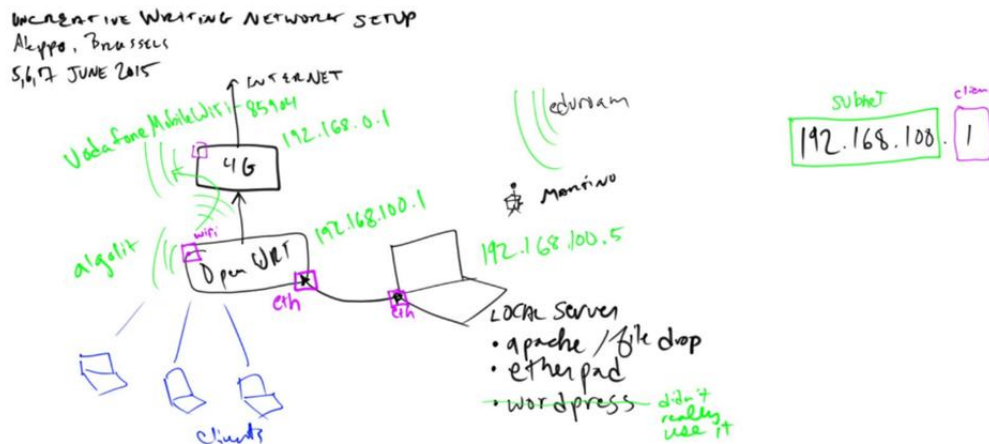 UNCREATIVE WRITING NETWORK SETUP
Aleppo, Brussels
5,6,7 JUNE 2015
INTERNET
VodafoneMobileWiFi-85904
192.168.0.1
4G
eduroam
MARTINO
subnet
client
192.168.100.1
192.168.100.1
algolit
wifi
Open WRT
eth
eth
192.168.100.5
LOCAL server
• apache / file drop
• etherpad
• wordpress
didn't
really
use it
clients